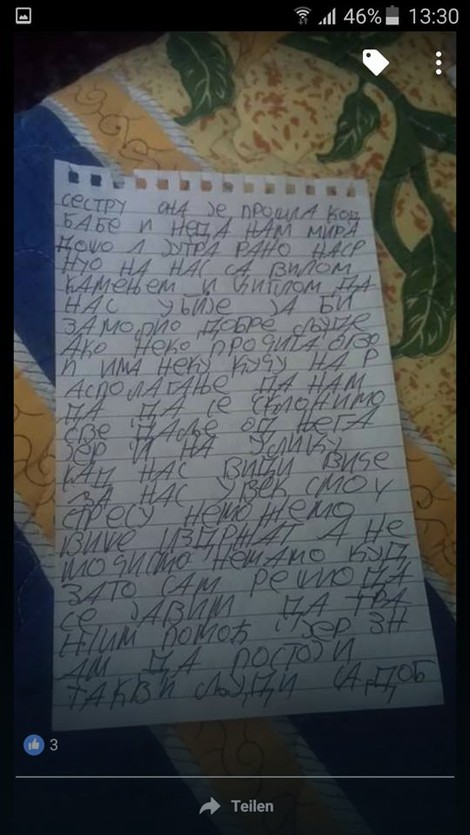 46% 13:30
СЕСТРУ ОНА ЈЕ ПРОШЛА КОД
БАБЕ И НЕДА НАМ МИРА
ДОШО Л ЈУТРА РАНО НАСР
НУО НА НАС СА ВИЛОМ
КАМЕЊЕМ И ЦИГЛОМ ДА
НАС УБИЈЕ ЈА БИ
ЗАМОЛИО ДОБРЕ ЉУДЕ
АКО НЕКО ПРОЧИТА ОВО
И ИМА НЕКУ КУЧУ НА Р
АСПОЛАГАЊЕ ДА НАМ
ДА ДА СЕ СКЛОНИМО
СВЕ ДАЉЕ ОД ЊЕГА
ЈЕР И НА УЛИЦУ
КАД НАС ВИДИ ВИЧЕ
ЗА НАС УВЕК СМО У
СТРЕСУ НЕМОЖЕМО
ВИШЕ ИЗДРЖАТ А НЕ
МОЧИМО НЕМАМО КУД
ЗАТО САМ РЕШИО ДА
СЕ ЈАВИМ ДА ТРА
ЖИМ ПОМОЋ ЈЕР ЗН
АМ ДА ПОСТОЈИ
ТАКВИ ЉУДИ СА ДОБ
3
Teilen